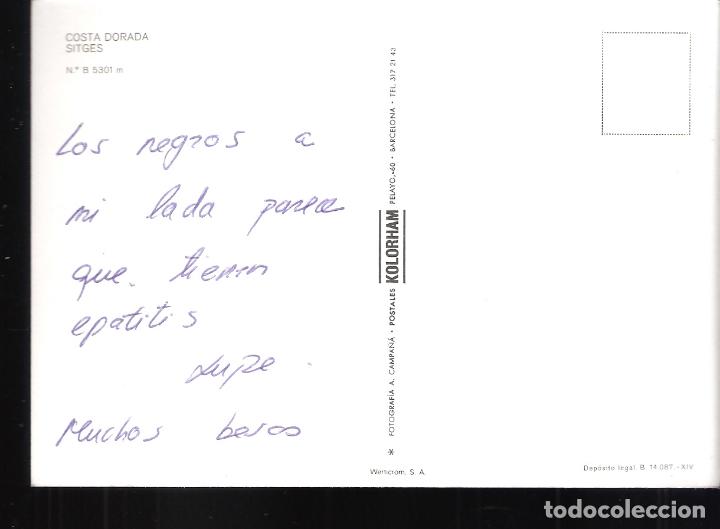 COSTA DORADA
SITGES
N.º B 5301 m
Los negros a
mi lado parece
que tienen
epatitis
Lupe.
Muchos besos
* FOTOGRAFIA A. CAMPAÑÁ • POSTALES KOLORHAM PELAYO, 60 • BARCELONA • TEL. 317 21 43
Werticrom, S. A.
Depósito legal. B. 14.087.-XIV
todocoleccion